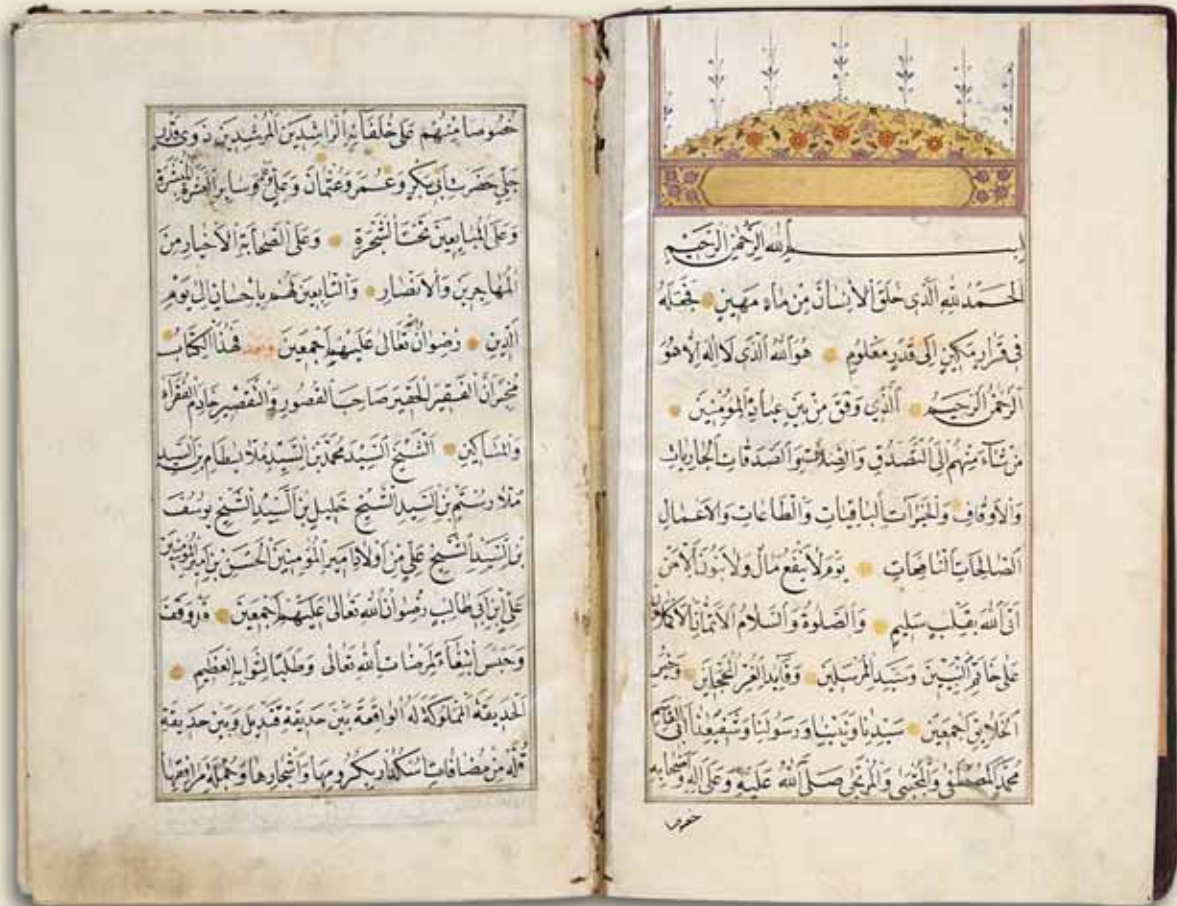 بسم الله الرحمن الرحيم
الحمد لله الذي خلق الانسان من ماء مهين فجعله
في قرار مكين الى قدر معلوم هو الله الذي لا اله الا هو
الرحمن الرحيم الذي وفق من بين عباده المؤمنين
من شاء منهم الى التصدق والصلات والصدقات الجاريات
والاوقاف والخيرات الباقيات والطاعات والاعمال
الصالحات النافعات يوم لا ينفع مال ولا بنون الا من
اتى الله بقلب سليم والصلوة والسلام الاتمان الاكملان
على خاتم النبيين وسيد المرسلين وقايد الغر المحجلين وخير
الخلايق اجمعين سيدنا ونبينا ورسولنا وشفيعنا ابي القاسم
محمد المصطفى والمجتبى والمرتجى صلى الله عليه وعلى اله واصحابه
خصوصا
خصوصا منهم على خلفائه الراشدين المرشدين ذوي قدر
جلي حضرت ابي بكر وعمر وعثمان وعلي وساير العشرة المبشرة
وعلى المبايعين تحت الشجرة وعلى الصحابة الاخيار من
المهاجرين والانصار والتابعين لهم باحسان الى يوم
الدين رضوان تعالى عليهم اجمعين وبعد فهذا الكتاب
مخبر ان الفقير الحقير صاحب القصور والتقصير خادم الفقراء
والمساكين الشيخ السيد محمد بن السيد ملا بسطام بن السيد
ملا رستم بن السيد الشيخ خليل بن السيد الشيخ يوسف
بن السيد الشيخ علي من اولاد امير المؤمنين الحسن بن امير المؤمنين
علي ابن ابي طالب رضوان الله تعالى عليهم اجمعين قد وقف
وحبس ابتغاء لمرضات الله تعالى وطلبا لثوابه العظيم
الحديقة المملوكة له الواقعة بين حديقة قنديل وبين حديقة
من مضافات بكرومها واشجارها وجملة مرافقها